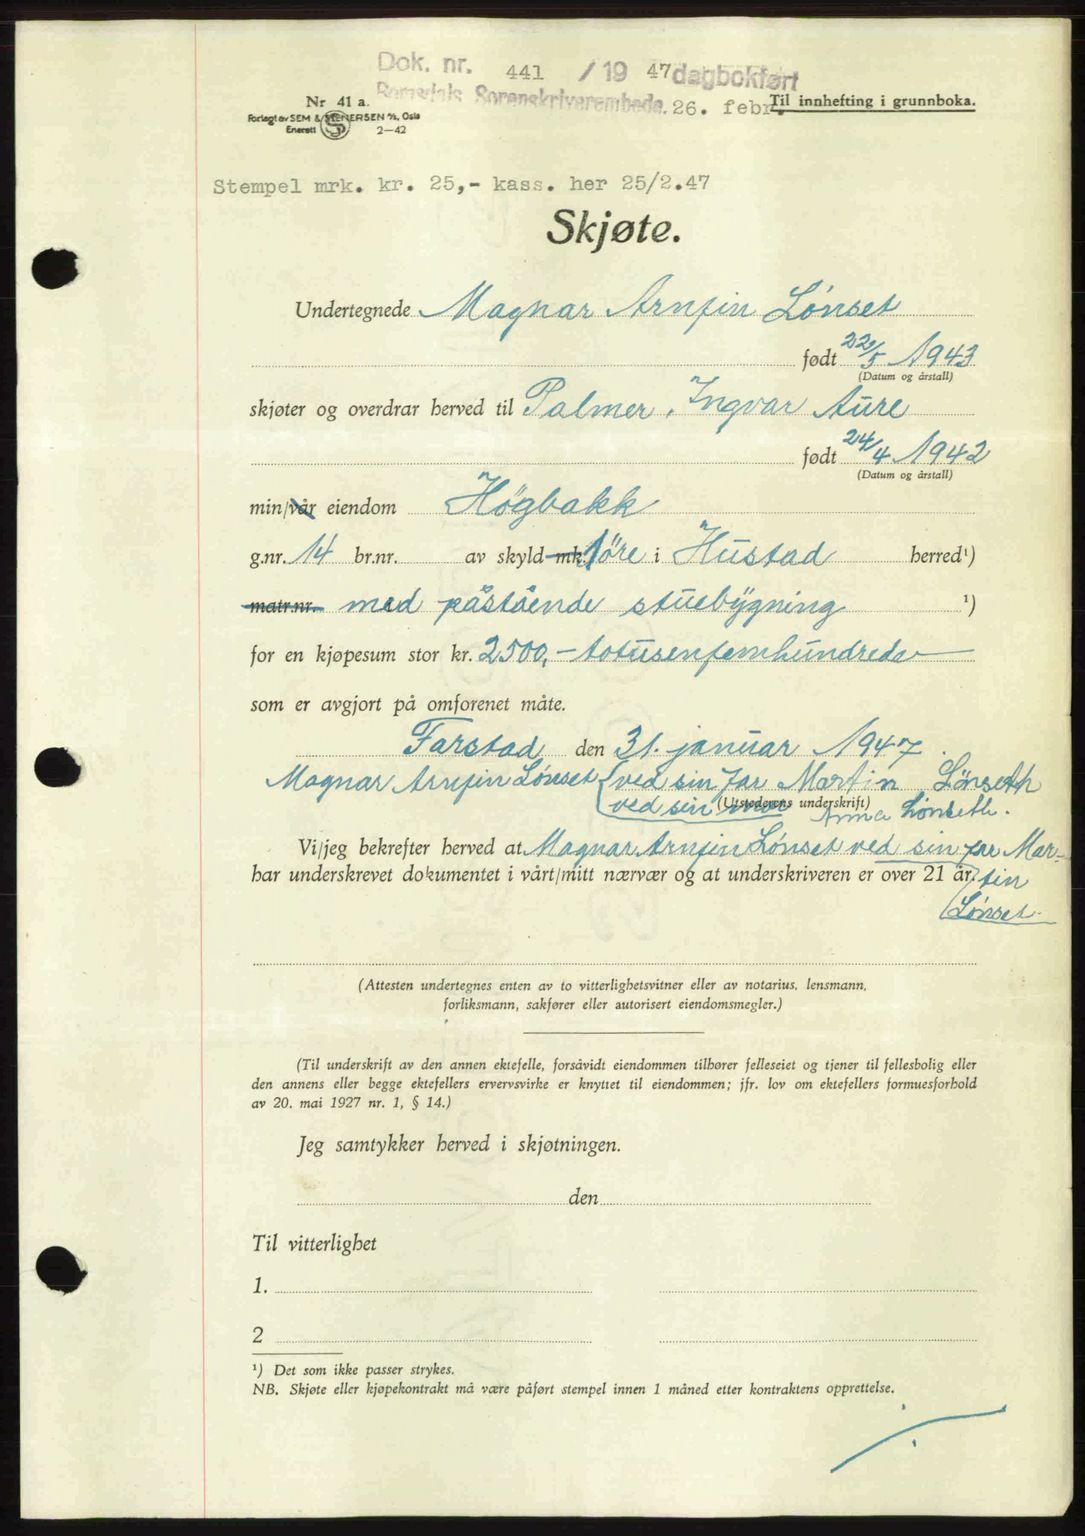 Dok. nr. 441 / 19 47 dagbokført
Romsdals Sorenskriverembede. 26. febr.
Til innhefting i grunnboka.
Nr 41 a.
Forlagt av SEM & STENERSEN A/S, Oslo
Enerett 2—42
Stempel mrk. kr. 25,- kass. her 25/2.47
Skjøte.
Undertegnede Magnar Arnfin Lønset
født 22/5 1943
(Datum og årstall)
skjøter og overdrar herved til Palmer Ingvar Aure
født 24/4 1942
(Datum og årstall)
min/vår eiendom Högbakk
g.nr. 14 br.nr. av skyld mk. 1 øre i Hustad herred¹)
matr.nr. med påstående stuebygning ¹)
for en kjøpesum stor kr. 2500,- totusenfemhundrede
som er avgjort på omforenet måte.
Farstad den 31. januar 1947.
Magnar Arnfin Lønset (ved sin far Martin Lønseth
(ved sin mor Anna Lønseth.
(Utstederens underskrift)
Vi/jeg bekrefter herved at Magnar Arnfin Lønset ved sin far Mar-
har underskrevet dokumentet i vårt/mitt nærvær og at underskriveren er over 21 år. tin
Lønset.
(Attesten undertegnes enten av to vitterlighetsvitner eller av notarius, lensmann,
forliksmann, sakfører eller autorisert eiendomsmegler.)
(Til underskrift av den annen ektefelle, forsåvidt eiendommen tilhører felleseiet og tjener til fellesbolig eller
den annens eller begge ektefellers ervervsvirke er knyttet til eiendommen; jfr. lov om ektefellers formuesforhold
av 20. mai 1927 nr. 1, § 14.)
Jeg samtykker herved i skjøtningen.
den
Til vitterlighet
1.
2
¹) Det som ikke passer strykes.
NB. Skjøte eller kjøpekontrakt må være påført stempel innen 1 måned etter kontraktens opprettelse.